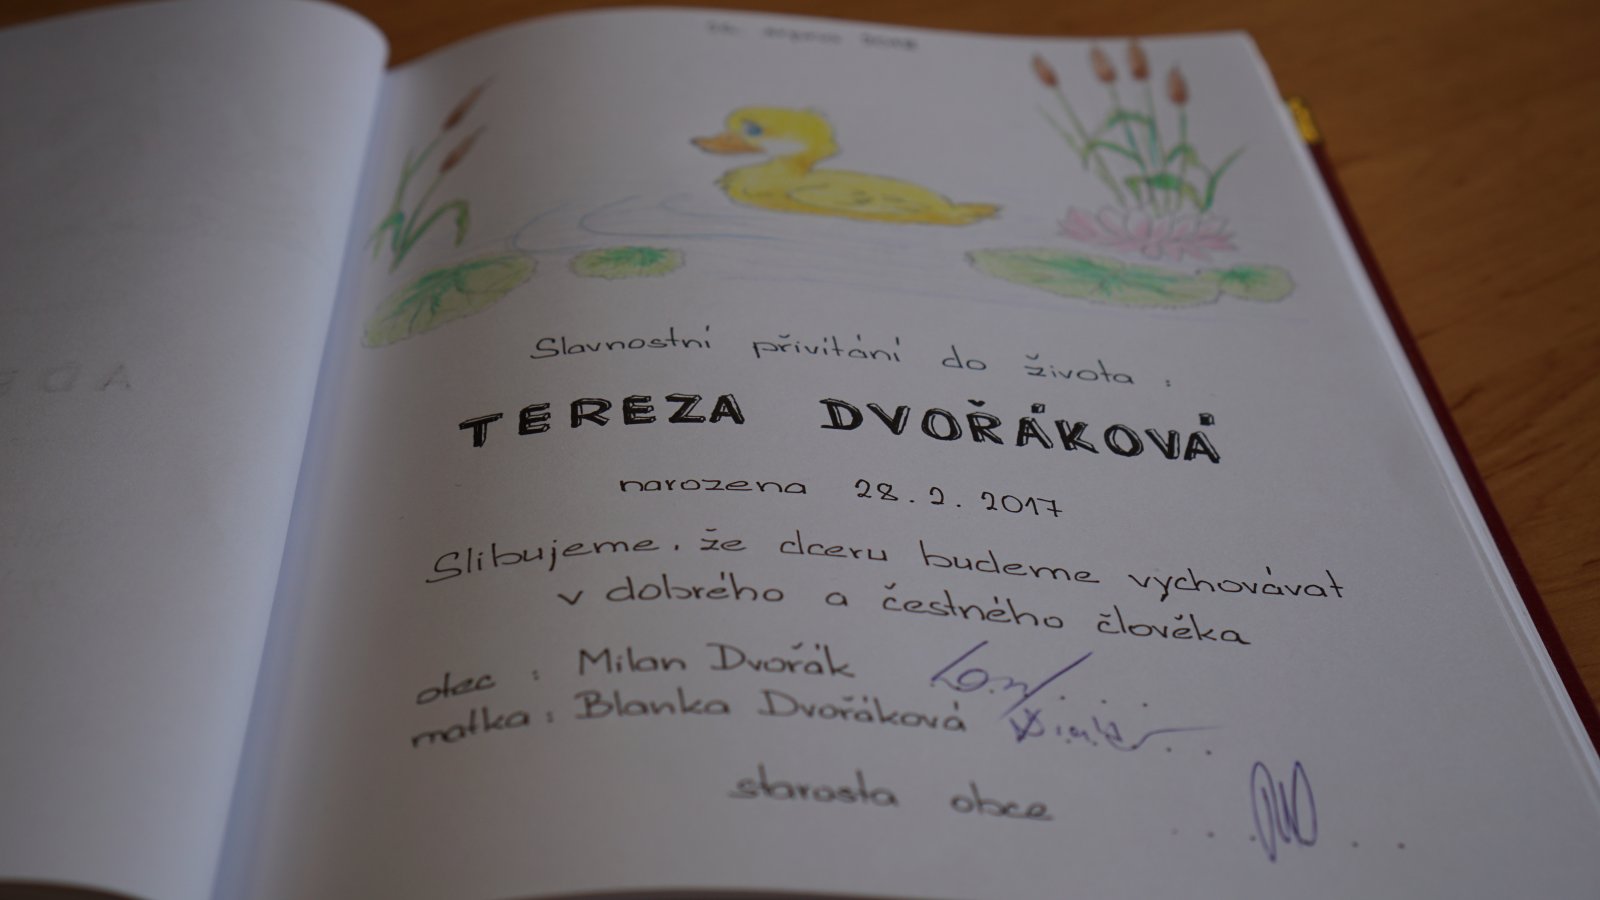 Slavnostní přivítání do života :
TEREZA DVOŘÁKOVÁ
narozena 28. 2. 2017
Slibujeme, že dceru budeme vychovávat
v dobrého a čestného člověka
otec : Milan Dvořák
matka : Blanka Dvořáková
starosta obce